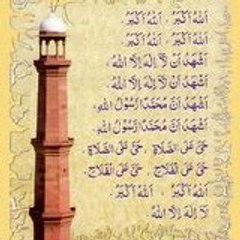 اَللهُ اَكْبَرُ ، اَللهُ اَكْبَرُ
اَللهُ اَكْبَرُ ، اَللهُ اَكْبَرُ
اَشْهَدُ اَنْ لَّآ اِلٰهَ اِلَّا اللهُ
اَشْهَدُ اَنْ لَّآ اِلٰهَ اِلَّا اللهُ ،
اَشْهَدُ اَنَّ مُحَمَّدًا رَّسُوْلُ اللهِ ،
اَشْهَدُ اَنَّ مُحَمَّدًا رَّسُوْلُ اللهِ ،
حَيَّ عَلَى الصَّلَاةِ ، حَيَّ عَلَى الصَّلَاةِ ،
حَيَّ عَلَى الْفَلَاحِ ، حَيَّ عَلَى الْفَلَاحِ ،
اَللهُ اَكْبَرُ ، اَللهُ اَكْبَرُ
لَآ اِلٰهَ اِلَّا اللهُ